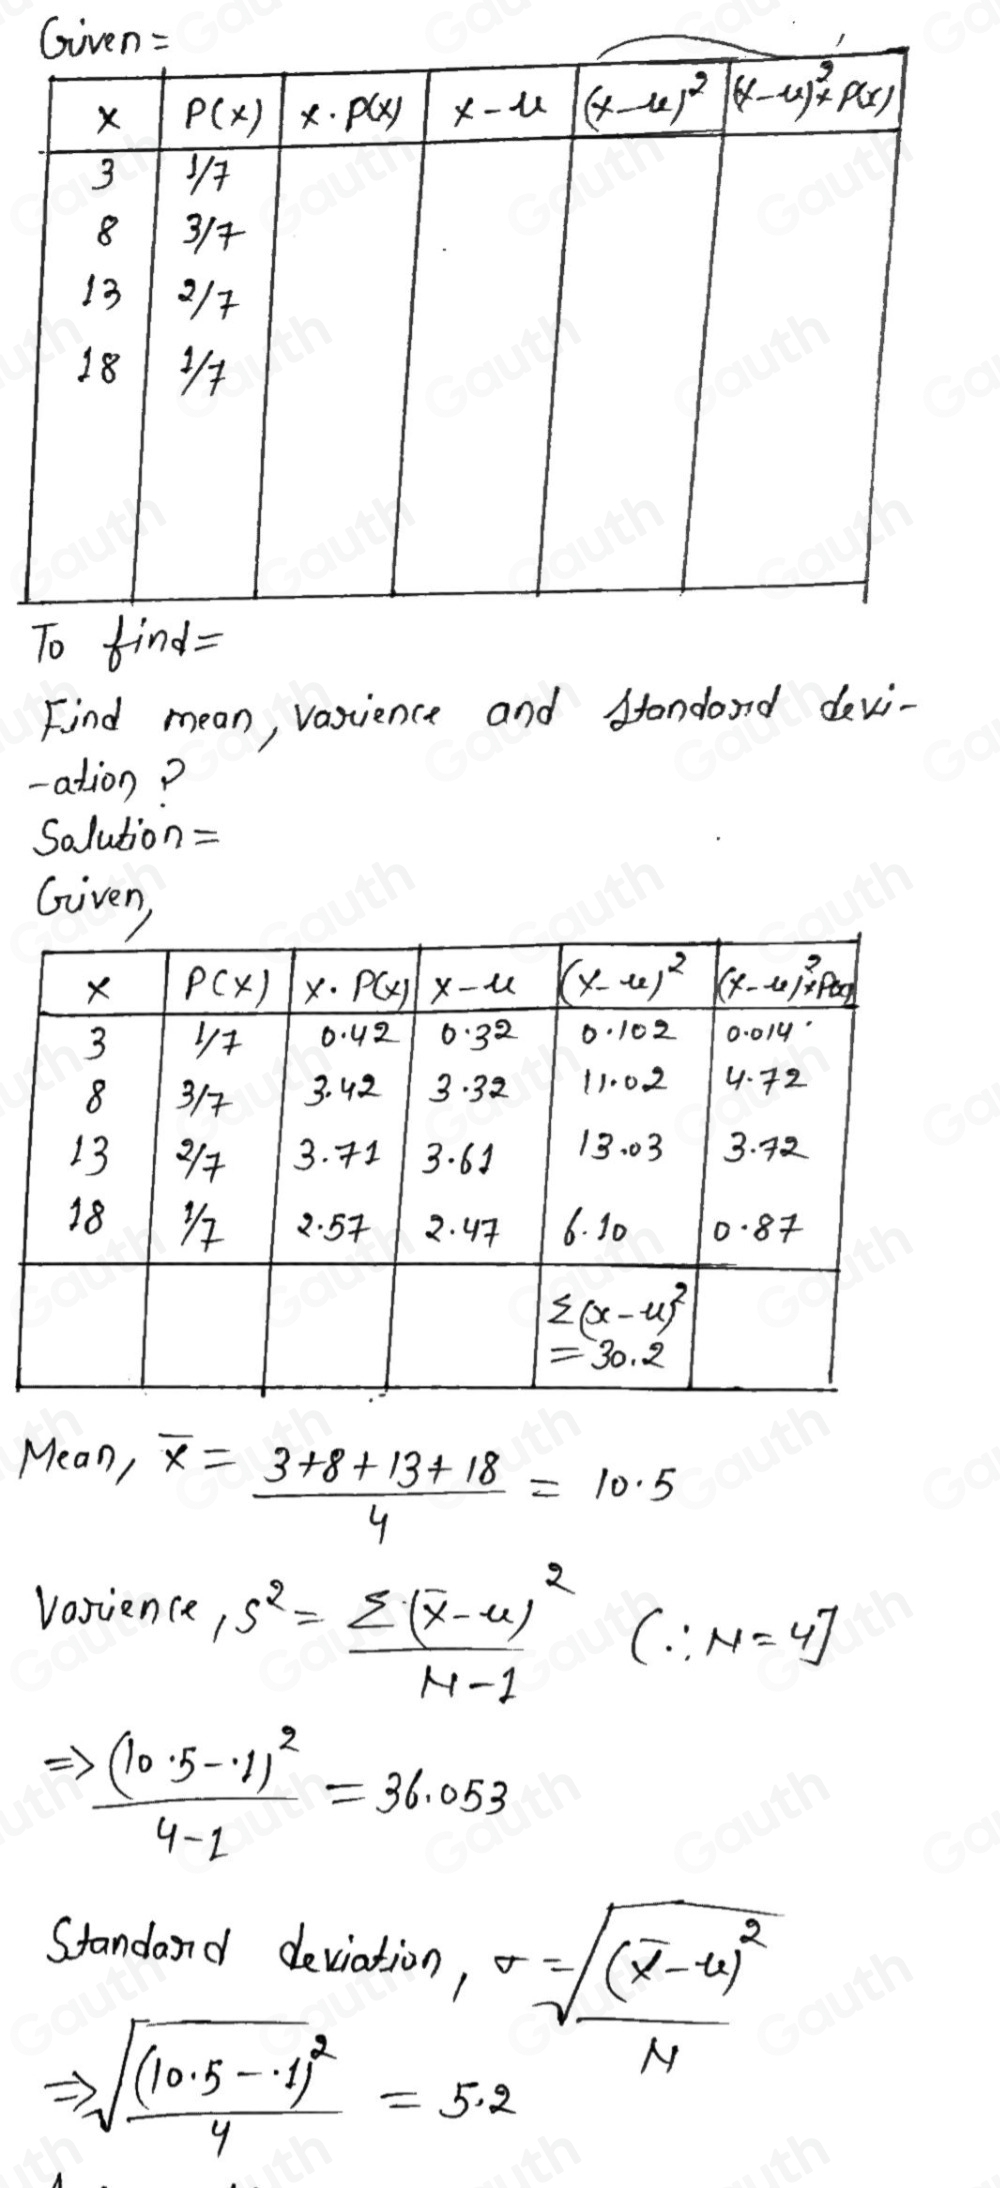 Given =
x P(x) x · P(x) x - u (x-u)² (x-u)² × P(x)
3 1/7
8 3/7
13 2/7
18 1/7
To find =
Find mean, varience and standard devi-
-ation ?
Solution =
Given,
x P(x) x · P(x) x - u (x-u)² (x-u)² × P(x)
3 1/7 0.42 0.32 0.102 0.014
8 3/7 3.42 3.32 11.02 4.72
13 2/7 3.71 3.61 13.03 3.72
18 1/7 2.57 2.47 6.10 0.87
Σ(x-u)²
= 30.2
Mean, x̄ = (3+8+13+18)/4 = 10.5
Varience, s² = Σ(x̄-u)²/(N-1) (∵ N = 4]
⇒ (10.5-.1)²/(4-1) = 36.053
Standard deviation, σ = √((x̄-u)²/N)
⇒ √((10.5-.1)²/4) = 5.2